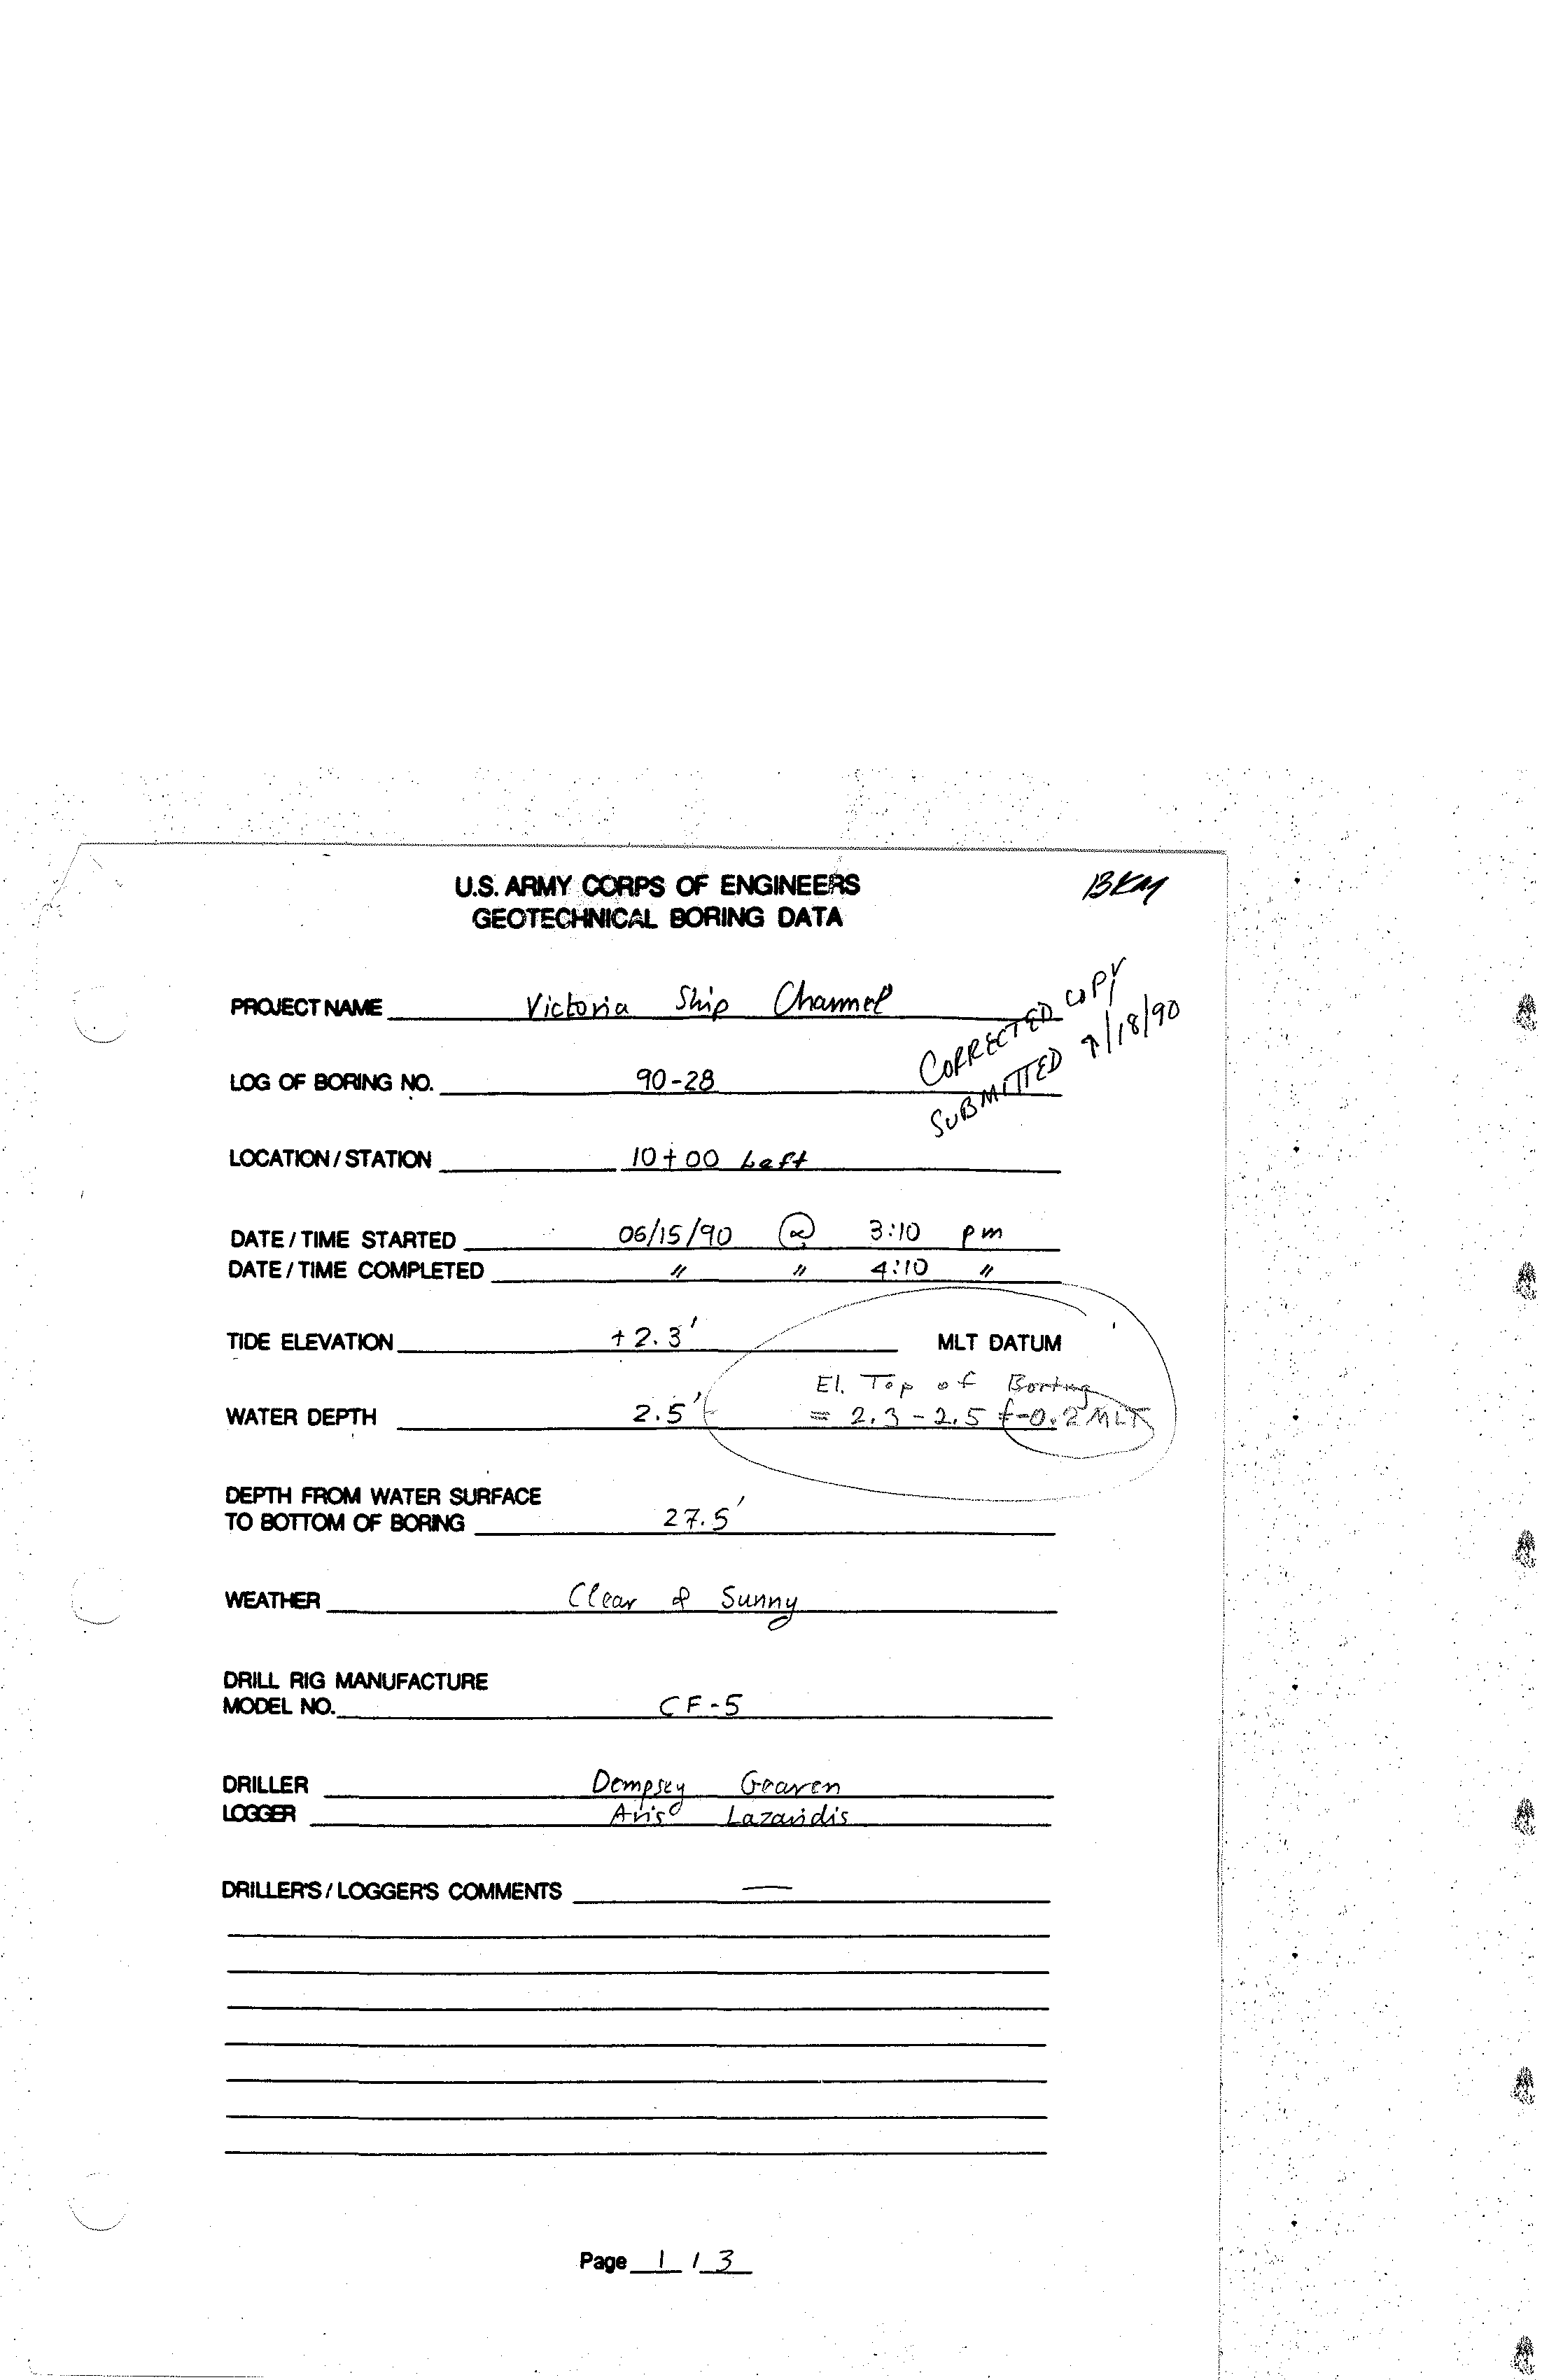 U.S. ARMY CORPS OF ENGINEERS
BKM
GEOTECHNICAL BORING DATA
PROJECT NAME Victoria Ship Channel
CORRECTED COPY
SUBMITTED 9/18/90
LOG OF BORING NO. 90-28
LOCATION / STATION 10+00 Left
DATE / TIME STARTED 06/15/90 @ 3:10 pm
DATE / TIME COMPLETED " " 4:10 "
TIDE ELEVATION +2.3' MLT DATUM
El. Top of Boring
WATER DEPTH 2.5' = 2.3 - 2.5 = -0.2 MLT
DEPTH FROM WATER SURFACE
TO BOTTOM OF BORING 27.5'
WEATHER Clear & Sunny
DRILL RIG MANUFACTURE
MODEL NO. CF-5
DRILLER Dempsey
LOGGER Aris Lazaridis
DRILLER'S / LOGGER'S COMMENTS —
Page 1 / 3